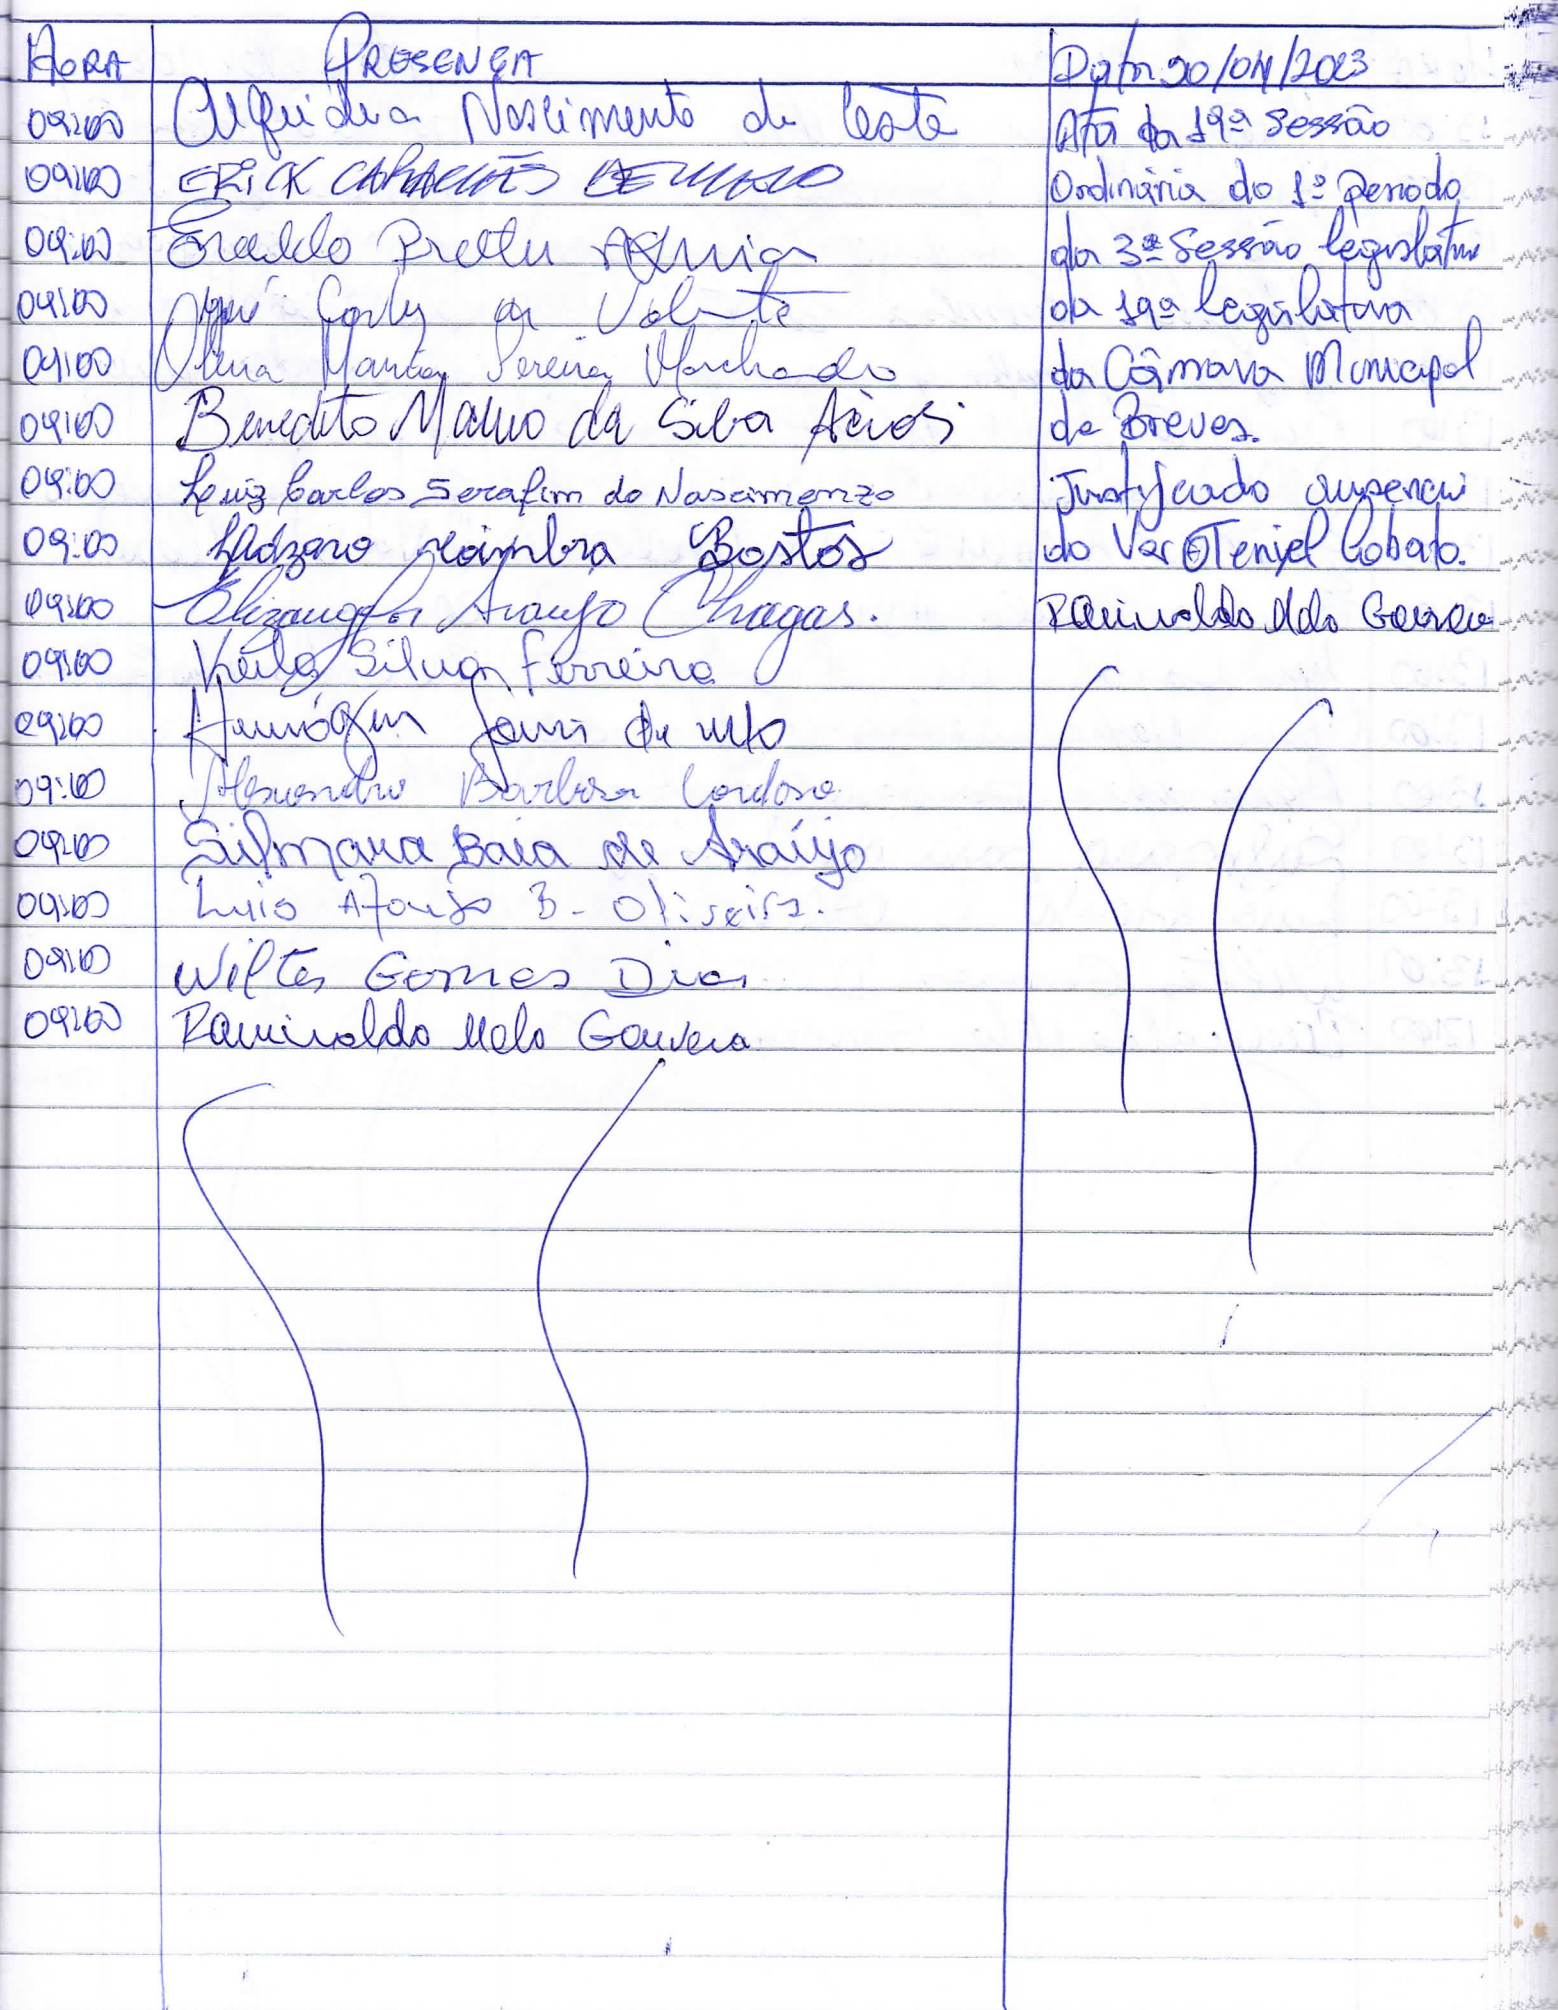 HORA PRESENÇA Data 20/04/2023
09:00 Nascimento de Ata da 19ª Sessão
09:00 ERICK Ordinária do 1º Período
09:00 Eraldo da 3ª Sessão legislativa
09:00 José da 19ª legislatura
09:00 Maria Pereira Machado da Câmara Municipal
09:00 Benedito Mauro da Silva de Breves.
09:00 Luiz Carlos Serafim do Nascimento Justificado ausencia
09:00 Ládzaro Coimbra Bastos do Ver Oteniel Lobato.
09:00 Elizangela Araujo Chagas. Raminaldo Melo Gouveia
09:00 Keila Silva Ferreira
09:00 de
09:00 Alessandro Barbosa Cardoso
09:00 Silmara Baia de Araújo
09:00 Lucio Afonso B. Oliveira.
09:00 Wilter Gomes Dias
09:00 Raminaldo Melo Gouveia